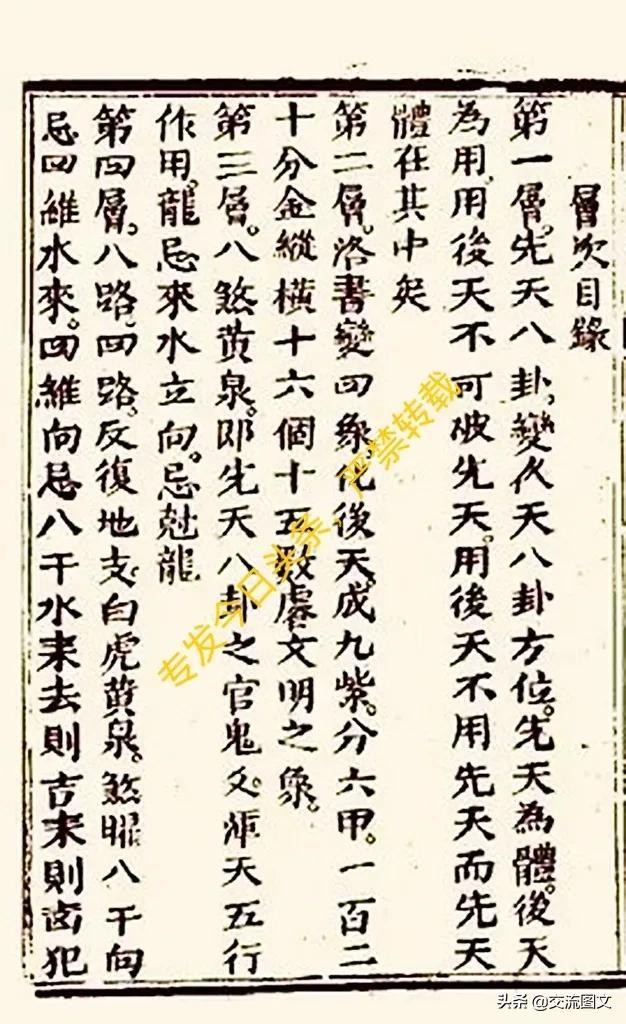 層次目錄
第一層。先天八卦。變後天八卦方位。先天為體。後天
為用。用後天不可破先天。用後天不用先天而先天
體在其中矣
第二層。洛書變四象。化後天。成九紫。分六甲。一百二
十分金縱橫十六個十五數。文明之象。
第三層。八煞黃泉。即先天八卦之官鬼爻。渾天五行
作用。龍忌來水立向。忌尅龍
第四層。八路四路。反復地支白虎黃泉。煞曜八干向
忌四維水來。四維向忌八干水来去則吉来則凶犯
专发今日头条，严禁转载
头条 @交流图文